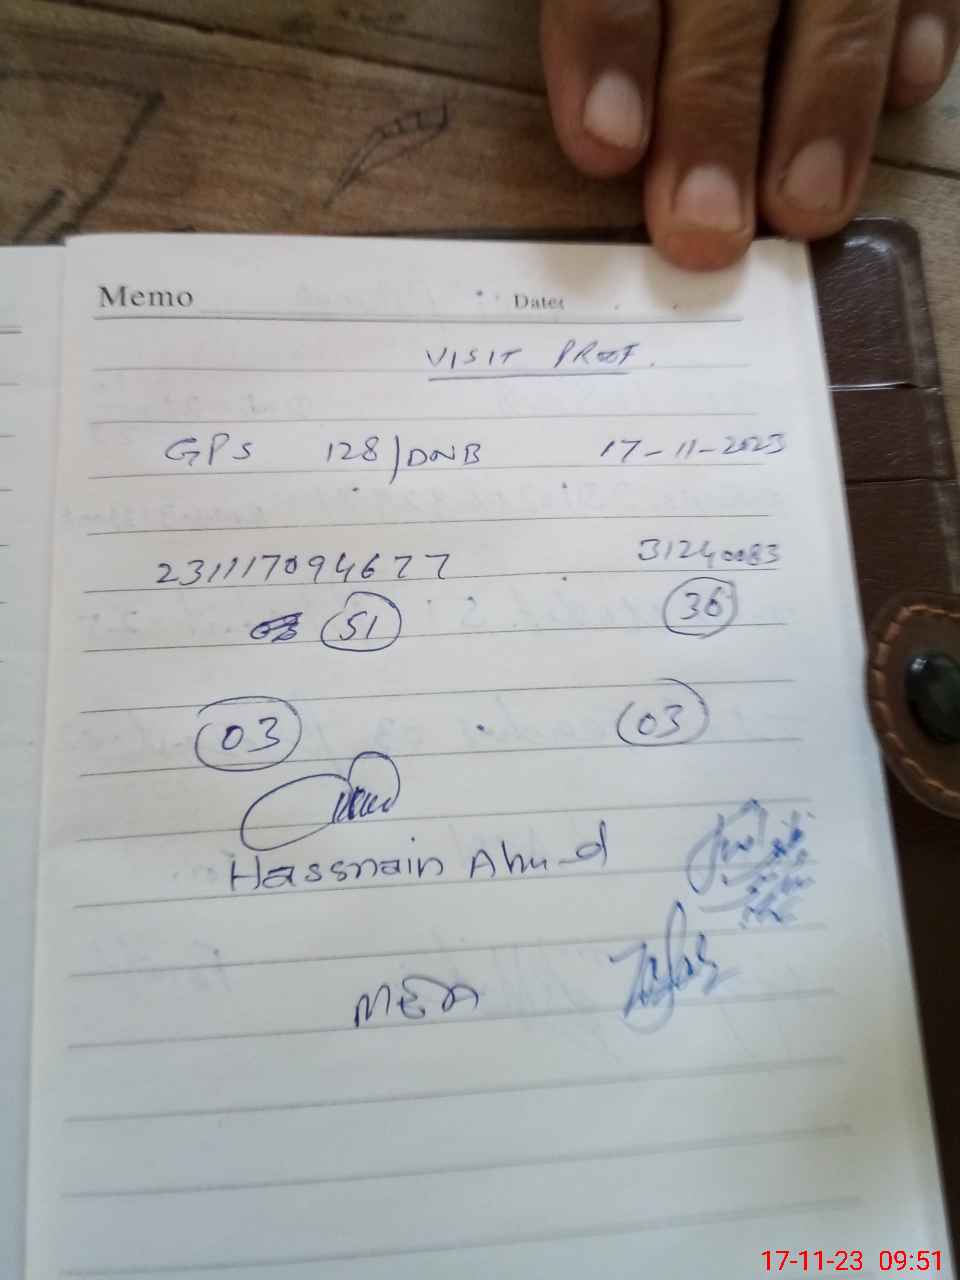 Memo Date:
VISIT PROOF.
GPS 128/DNB 17-11-2023
231117094677 31240083
51 36
03 03
Hassnain Ahmd
MEA
17-11-23 09:51